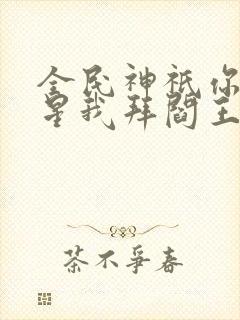 全民神祇你
星我拜阎王
茶不爭春